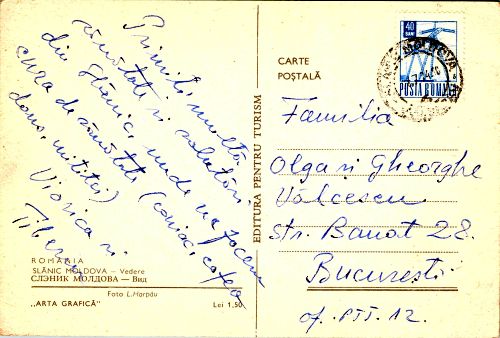 Primiți multă
sănătate și salutări
din Slănic, unde ne facem
cura de sănătate (coniac, cafea
doms, mititei)
Viorica și
Tiberiu
ROMÂNIA
SLĂNIC MOLDOVA – Vedere
СЛЭНИК МОЛДОВА — Вид
Foto L. Harpău
„ARTA GRAFICĂ”
Lei 1,50
EDITURA PENTRU TURISM
CARTE
POȘTALĂ
40
BANI
POSTA ROMANA
MOLDOVA
Familia
Olga și Gheorghe
Vâlcescu
str. Banat 28
București
of. PTT. 12.